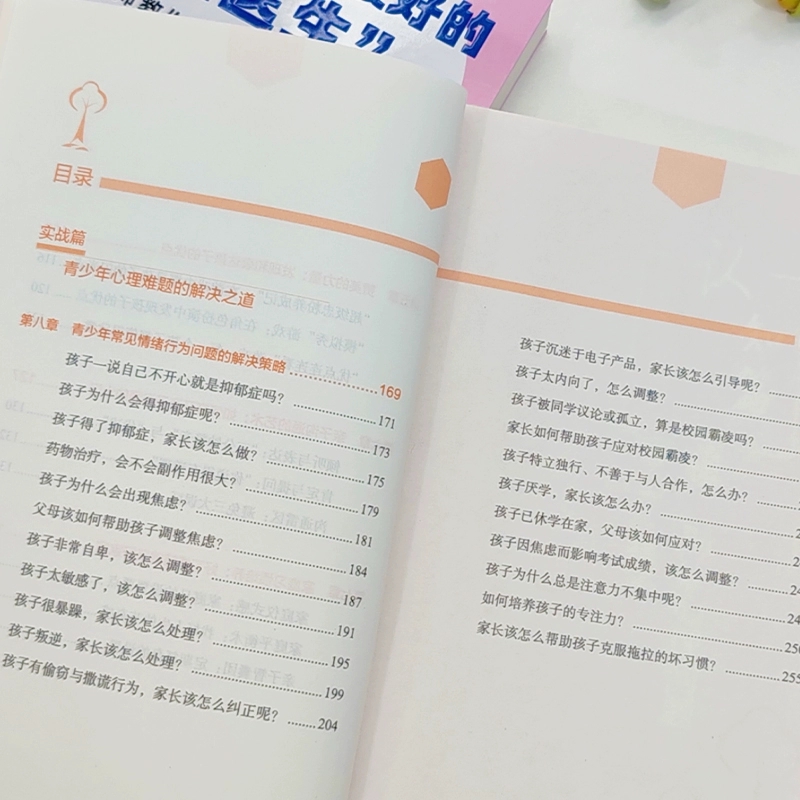 好的
医生”
目录
实战篇
青少年心理难题的解决之道
第八章 青少年常见情绪行为问题的解决策略 169
孩子一说自己不开心就是抑郁症吗? 171
孩子为什么会得抑郁症呢? 173
孩子得了抑郁症,家长该怎么做? 175
药物治疗,会不会副作用很大? 179
孩子为什么会出现焦虑? 181
父母该如何帮助孩子调整焦虑? 184
孩子非常自卑,该怎么调整? 187
孩子太敏感了,该怎么调整? 191
孩子很暴躁,家长该怎么处理? 195
孩子叛逆,家长该怎么处理? 199
孩子有偷窃与撒谎行为,家长该怎么纠正呢? 204
孩子沉迷于电子产品,家长该怎么引导呢?
孩子太内向了,怎么调整?
孩子被同学议论或孤立,算是校园霸凌吗?
家长如何帮助孩子应对校园霸凌?
孩子特立独行、不善于与人合作,怎么办?
孩子厌学,家长该怎么办?
孩子已休学在家,父母该如何应对?
孩子因焦虑而影响考试成绩,该怎么调整?
孩子为什么总是注意力不集中呢?
如何培养孩子的专注力? 250
家长该怎么帮助孩子克服拖拉的坏习惯? 255